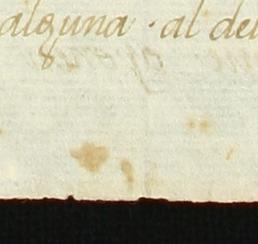 alguna · al del